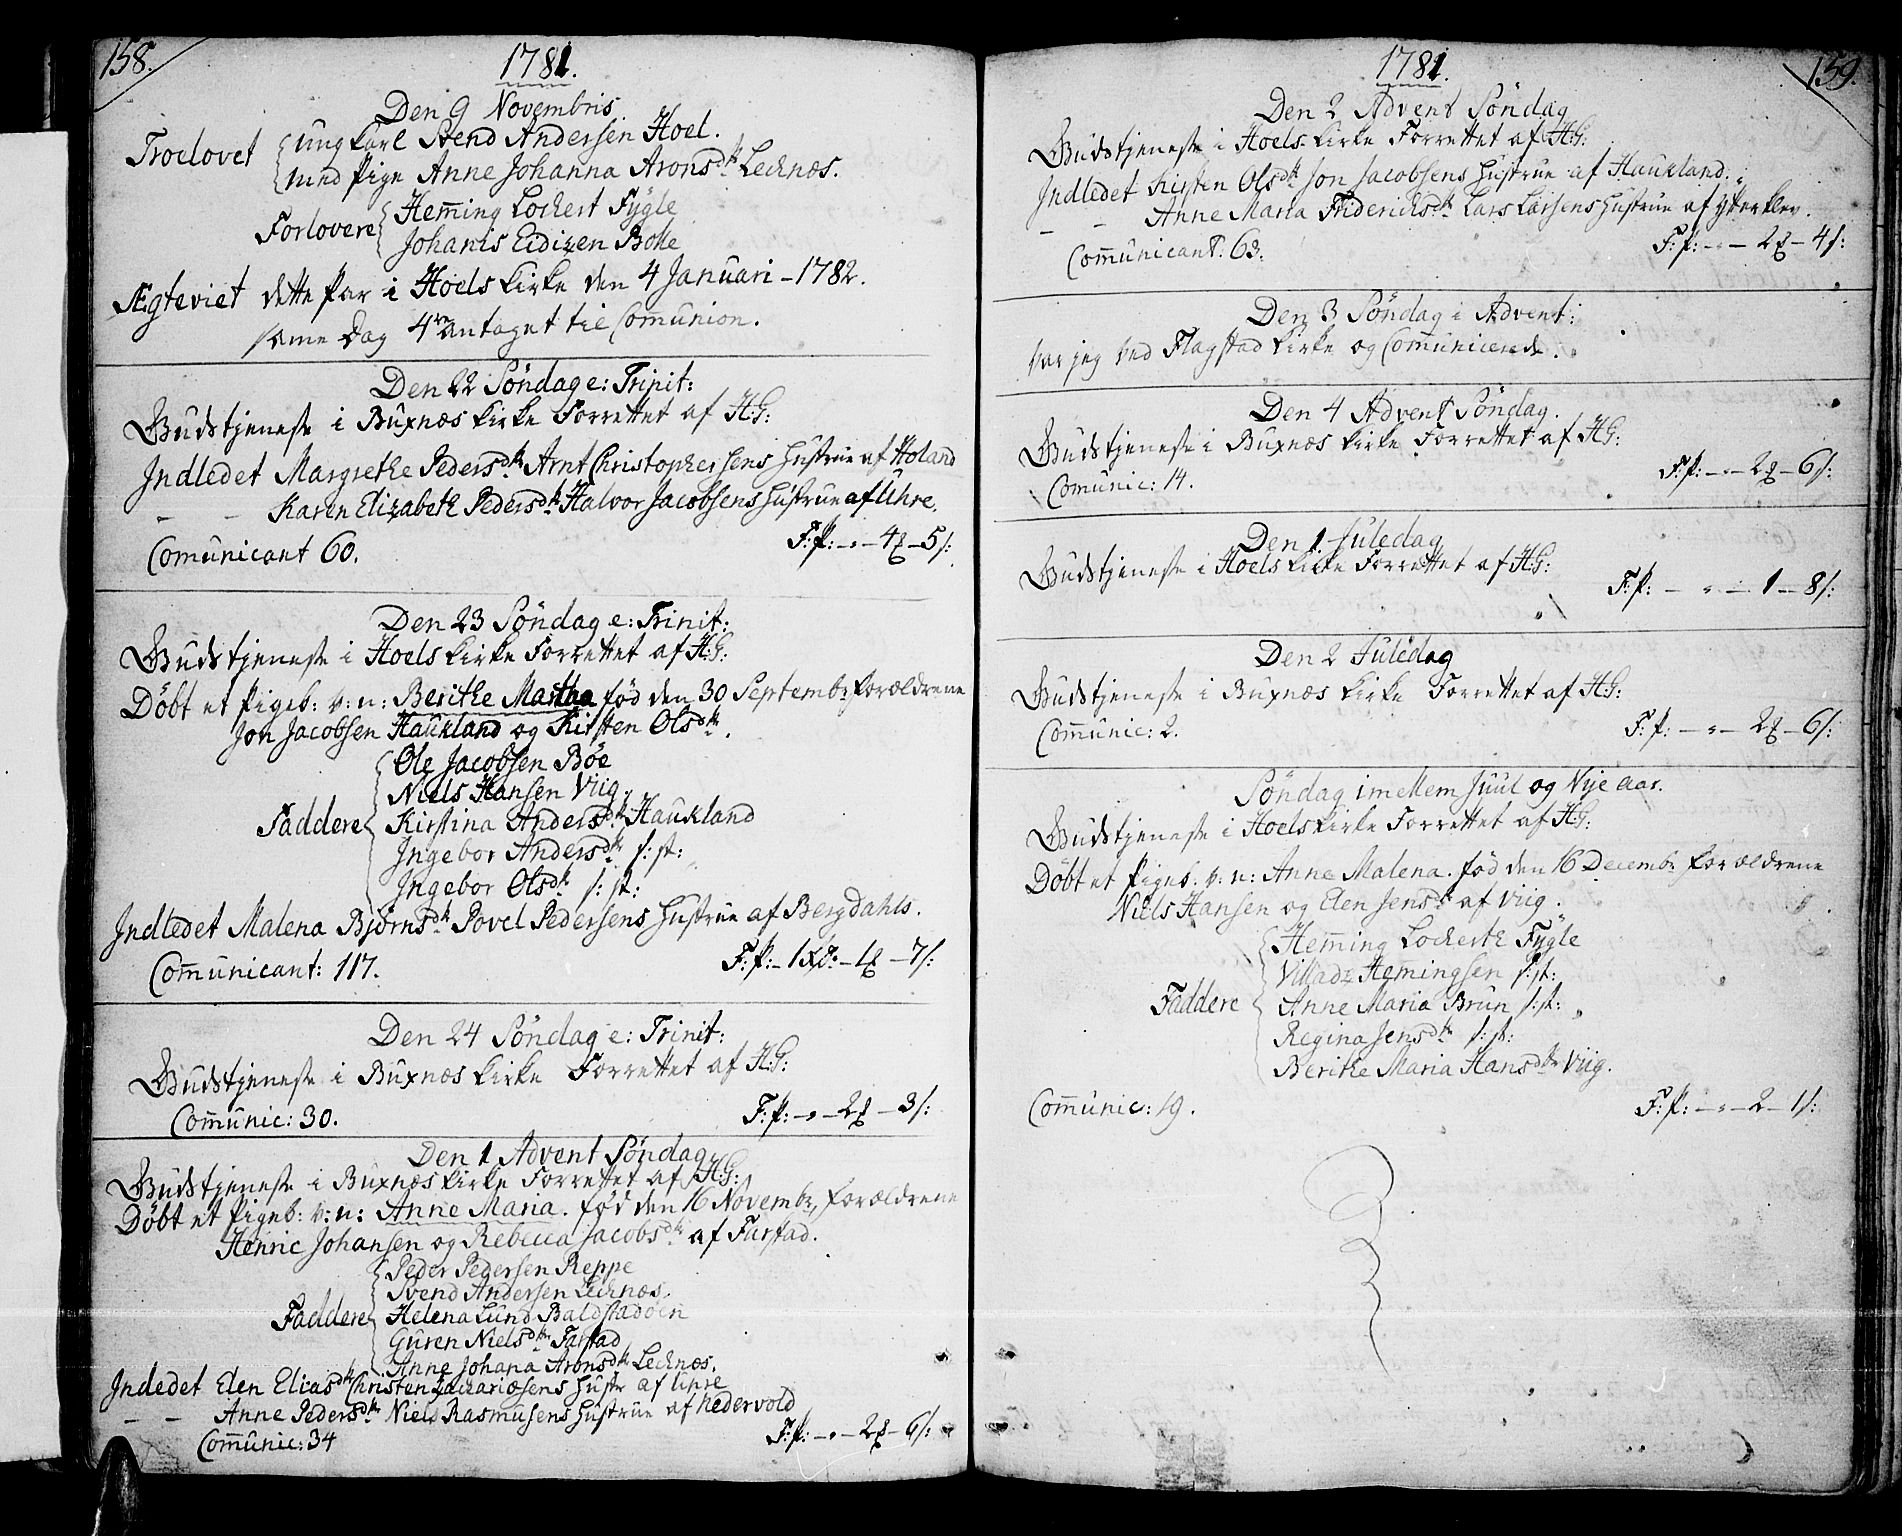 158.
1781.
Den 9 Novembris
Troelovet ungkarl Svend Andersen Hoel.
med Pige Anne Johanna Aronsdtr Lecknæs.
Forlovere Hem̄ing Lockert Fygle
Johanis Eidizen Bolle
Ægteviet dette Par i Hoels Kirke den 4 Januari - 1782.
sam̄e Dag 4re antaget til Com̄union.
Den 22 Søndag e: Trinit:
Gudstjeneste i Buxnæs Kirke Forrettet af H:G:
Indledet Margrethe Pedersdtr Arnt Christophersens Hustrue af Holand
- - Karen Elizabeth Pedersdtr Halvor Jacobsens Hustrue af Uhre.
Com̄unicant 60. F:P: - „ - 4 - 5 s:
Den 23 Søndag e: Trinit:
Gudstjeneste i Hoels Kirke Forrettet af H:G:
Døbt et Pigeb: v: n: Berithe Martha fød den 30 Septembr forældrene
Jon Jacobsen Haukland og Kirsten Olsdtr.
Ole Jacobsen Bøe
Niels Hansen Viig.
Faddere Kirstina Andersdtr Haukland
Ingebor Andersdtr s: st:
Ingebor Olsdtr s: st:
Indledet Malena Bjørnsdtr Povel Pedersens Hustrue af Bergdahls.
Com̄unicant: 117. F:P: - 1 - 1 - 7 s:
Den 24 Søndag e: Trinit:
Gudstjeneste i Buxnæs Kirke Forrettet af H:G:
Com̄unic: 30. F:P: - „ - 2 - 3 s:
Den 1 Advent Søndag
Gudstjeneste i Buxnæs Kirke Forrettet af H:G:
Døbt et Pigeb: v: n: Anne Maria. fød den 16 Novembr, forældrene
Henric Johansen og Rebecca Jacobsdtr af Farstad.
Peder Pedersen Reppe
Svend Andersen Lecknæs.
Faddere Helena Lund Baldstadøen
Guren Nielsdtr Farstad
Anne Johana Aronsdtr Lecknæs.
Indledet Elen Eliasdtr Christen Zachariæsens Hustr af Uhre
- - Anne Pedersdtr Niels Rasmusens Hustrue af Nedervold
Com̄unic: 34 F:P: - „ - 2 - 6 s:
159.
1781.
Den 2 Advent Søndag
Gudstjeneste i Hoels Kirke Forrettet af H:G:
Indledet Kirsten Olsdtr Jon Jacobsens Hustrue af Haukland.
- - Anne Maria Friderichsdtr Lars Larsens Hustrue af Ytterklev.
Com̄unicant: 63. F:P: - „ - 2 - 4 s:
Den 3 Søndag i Advent:
var jeg ved Flagstad Kirke og Com̄unicerede.
Den 4 Advent Søndag.
Gudstjeneste i Buxnæs Kirke Forrettet af H:G:
Com̄unic: 14. F:P: - „ - 2 - 6 s:
Den 1 Juledag
Gudstjeneste i Hoels Kirke Forrettet af H:G:
F:P: - „ - 1 - 8 s:
Den 2 Juledag
Gudstjeneste i Buxnæs Kirke Forrettet af H:G:
Com̄unic: 2. F:P: - „ - 2 - 6 s:
Søndag imellem Juul og Nyeaar.
Gudstjeneste i Hoels Kirke Forrettet af H:G:
Døbt et Pigeb. v: n: Anne Malena. fød den 16 Decembr forældrene
Niels Hansen og Elen Jensdtr af Viig.
Hem̄ing Lockerth Fygle
Villadz Hem̄ingsen s: st:
Faddere Anne Maria Brun s: st:
Regina Jensdtr s: st:
Berithe Maria Hansdtr Viig.
Com̄unic: 19. F:P: - „ - 2 - 1 s: